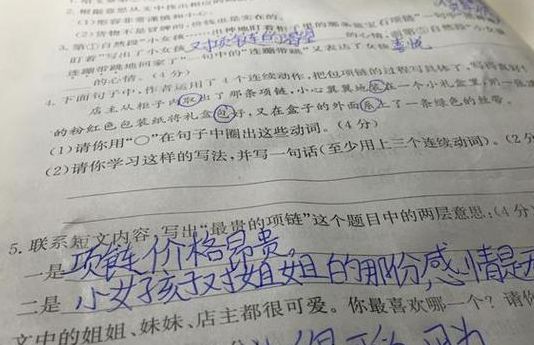 (1)形容非常谨慎细小心。
3. 第①自然段"小女孩……出神地盯着柜子里的那条蓝宝石项链"一句中"出神地
盯着"写出了小女孩对项链的渴望的心情,
连蹦带跳地回家了"一句中的"连蹦带跳"又表达了女孩喜悦
的心情。(4分)
4. 下面句子中,作者运用了4个连续动作,把包项链的过程写具体了,写得真好!
店主从柜子内取出了那条项链,小心翼翼地装在一个小礼盒里,用一张
的粉红色包装纸将礼盒包好,又在盒子的外面系上了一条绿色的丝带。
(1)请你用"○"在句子中圈出这些动词。(4分)
(2)请你学习这样的写法,并写一句话(至少用上三个连续动词)。(2分
5. 联系短文内容,写出"最贵的项链"这个题目中的两层意思:(4分
一是项链价格昂贵。
二是小女孩子对姐姐的那份感情是无
文中的姐姐、妹妹、店主都很可爱。你最喜欢哪一个?请你